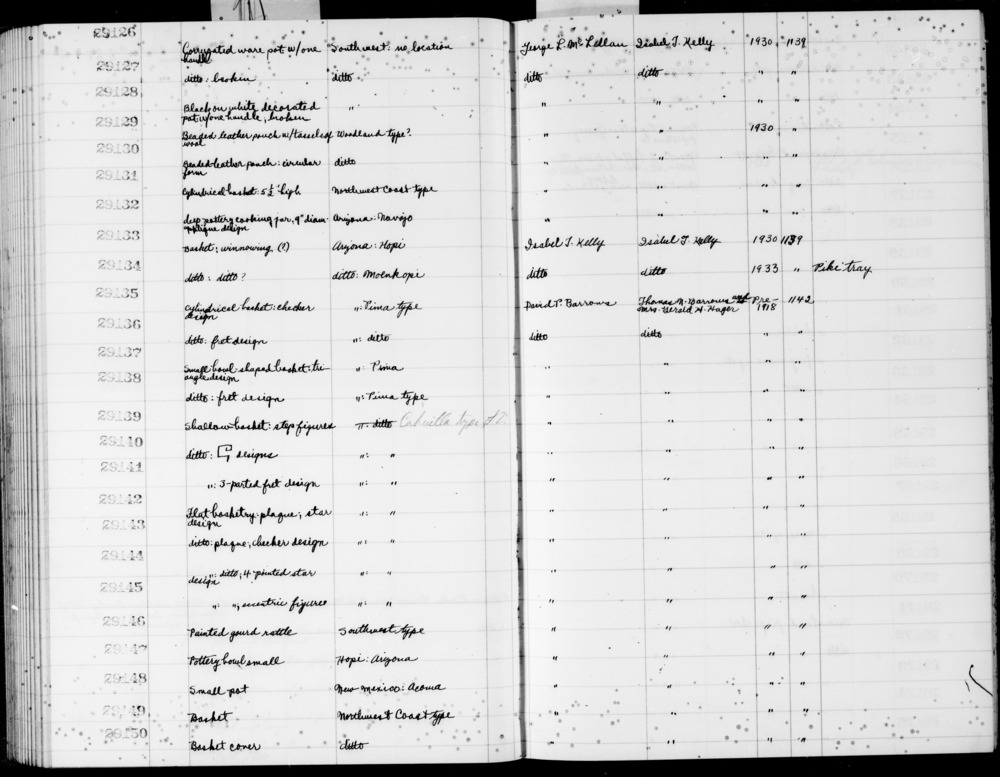 29126
Corrugated ware pot w/one handle Southwest: no location George L. McLellan Isabel T. Kelly 1930 1139
29127
ditto: broken ditto ditto ditto " "
29128
Black on white decorated pot w/one handle, broken " " " " "
29129
Beaded leather pouch w/tassels of wool Woodland type? " " 1930 "
29130
Beaded leather pouch: circular form ditto " " " "
29131
Cylindrical basket: 5½" high Northwest Coast type " " " "
29132
deep pottery cooking jar, 9" diam. Arizona: Navajo " " " "
design
29133
Basket: winnowing (?) Arizona: Hopi Isabel T. Kelly Isabel T. Kelly 1930 1139
29134
ditto: ditto? ditto: Moenkopi ditto ditto 1933 " Piki tray
29135
Cylindrical basket: checker design ": Pima type David P. Barrows Thomas N. Barrows and Mrs. Gerald H. Hager Pre-1918 1142
29136
ditto: fret design ": ditto ditto ditto " "
29137
Small bowl-shaped basket: triangle design ": Pima " " " "
29138
ditto: fret design ": Pima type " " " "
29139
Shallow basket: step figures ": ditto Cahuilla type " " " "
29140
ditto: designs ": " " " " "
29141
": 3-parted fret design ": " " " " "
29142
Flat basketry plaque; star design ": " " " " "
29143
ditto: plaque; checker design ": " " " " "
29144
": ditto; 4-pointed star design ": " " " " "
29145
": "; eccentric figures ": " " " " "
29146
Painted gourd rattle Southwest type " " " "
29147
Pottery bowl small Hopi: Arizona " " " "
29148
Small pot New Mexico: Acoma " " " "
29149
Basket Northwest Coast type " " " "
29150
Basket cover ditto " " " "